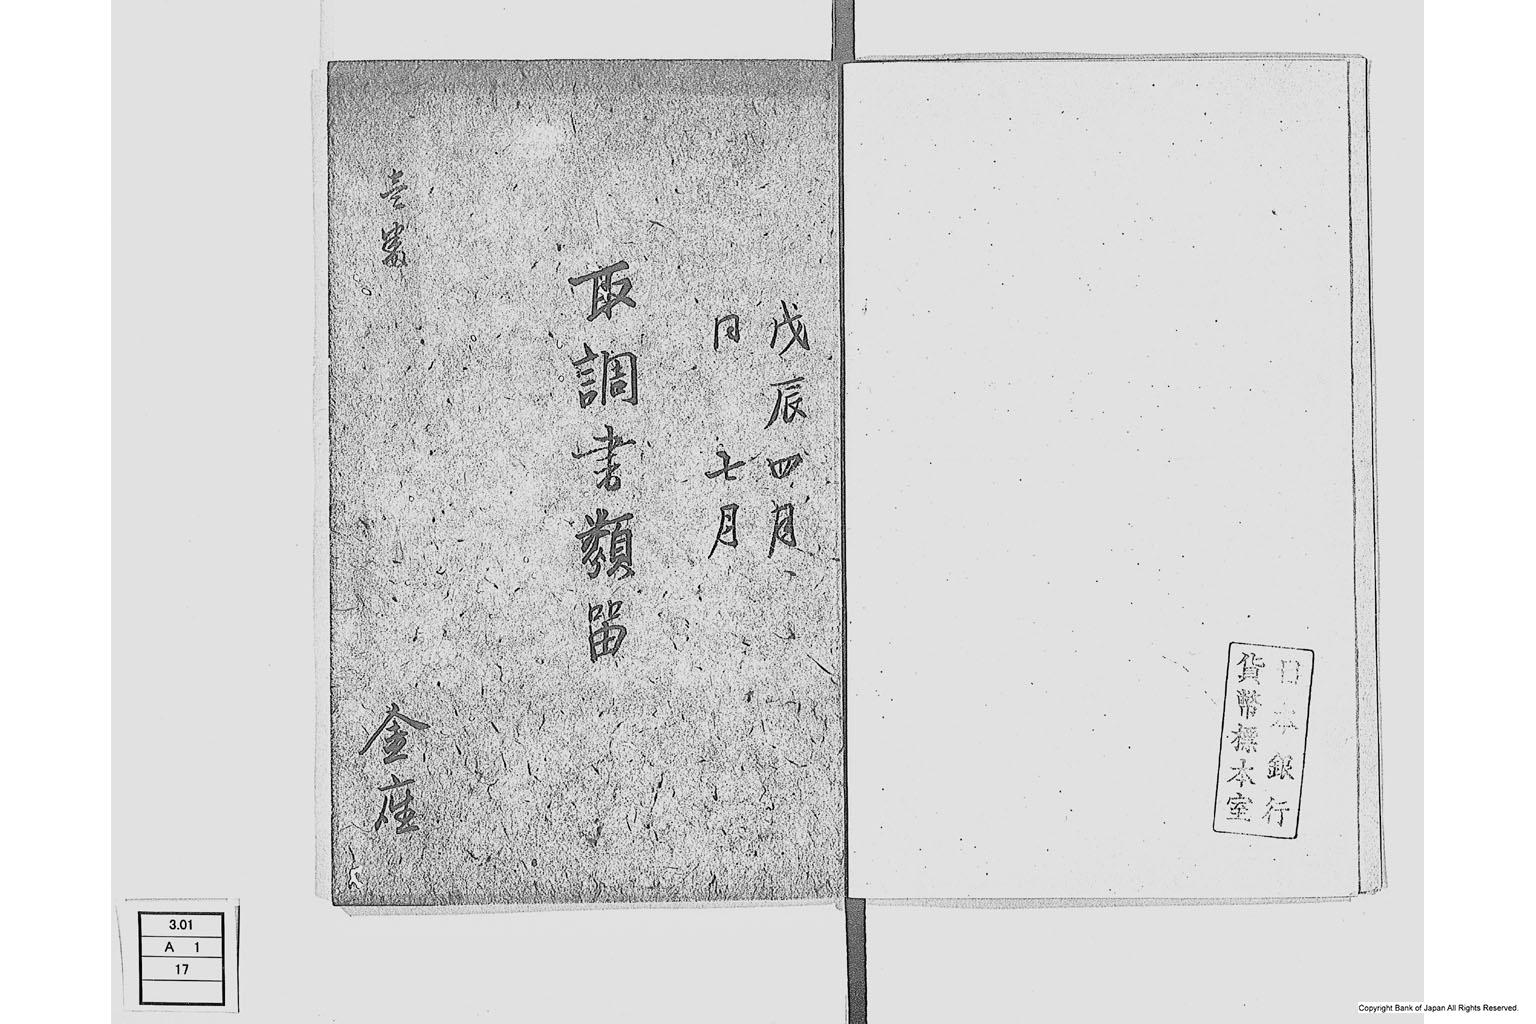 日本銀行
貨幣標本室
戊辰四月
同 七月
取調書類留
壱番
金座
3.01
A 1
17
Copyright Bank of Japan All Rights Reserved.